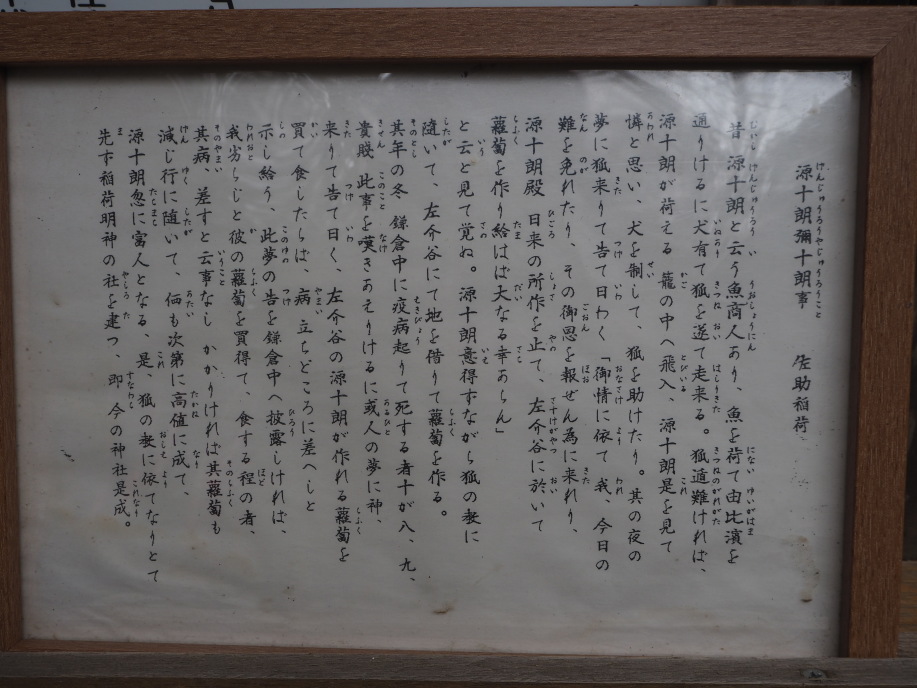 源十朗彌十朗事　佐助稲荷
昔 源十朗と云う魚商人あり、魚を荷て由比濱を
通りけるに犬有て狐を逐て走来る。狐遁難ければ、
源十朗が荷える 籠の中へ飛入、源十朗是を見て
憐と思い、犬を制して、狐を助けたり。其の夜の
夢に狐来りて告て曰わく「御情に依て 我、今日の
難を免れたり、その御恩を報ぜん為に来れり、
源十朗殿 日来の所作を止て、左介谷に於いて
蘿蔔を作り給はば大なる幸あらん」
と云と見て覚ぬ。源十朗意得すながら狐の教に
隨いて、左介谷にて地を借りて蘿蔔を作る。
其年の冬 鎌倉中に疫病起りて死する者十が八、九、
貴賤 此事を嘆きあえりけるに或人の夢に神、
来りて告て曰く、左介谷の源十朗が作れる蘿蔔を
買て食したらば、病 立ちどころに差へしと
示し給う、此夢の告を鎌倉中へ披露しければ、
我劣らじと彼の蘿蔔を買得て、食する程の者、
其病、差すと云事なし かかりければ其蘿蔔も
減じ行に随いて、価も次第に高値に成て、
源十朗忽に富人となる、是、狐の教に依てなりとて
先す稲荷明神の社を建つ、即、今の神社是成。